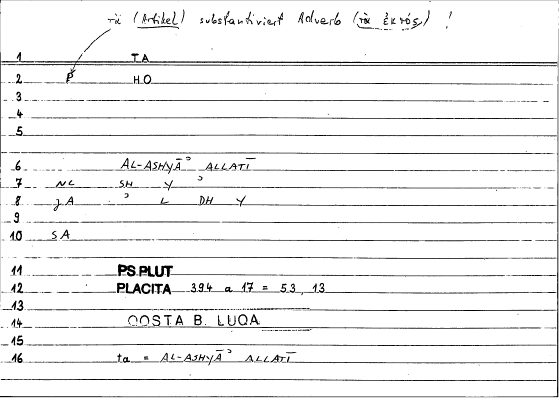 τὰ (Artikel) substantiviert Adverb (τὰ ἐκτός) !
1 TA
2 P HO
3
4
5
6 AL-ASHYĀʾ ALLATĪ
7 NC SH Y ʾ
8 JA ʾ L DH Y
9
10 SA
11 PS.PLUT
12 PLACITA 394 a 17 = 53, 13
13
14 QOSTA B. LUQA
15
16 ta = AL-ASHYĀʾ ALLATĪ